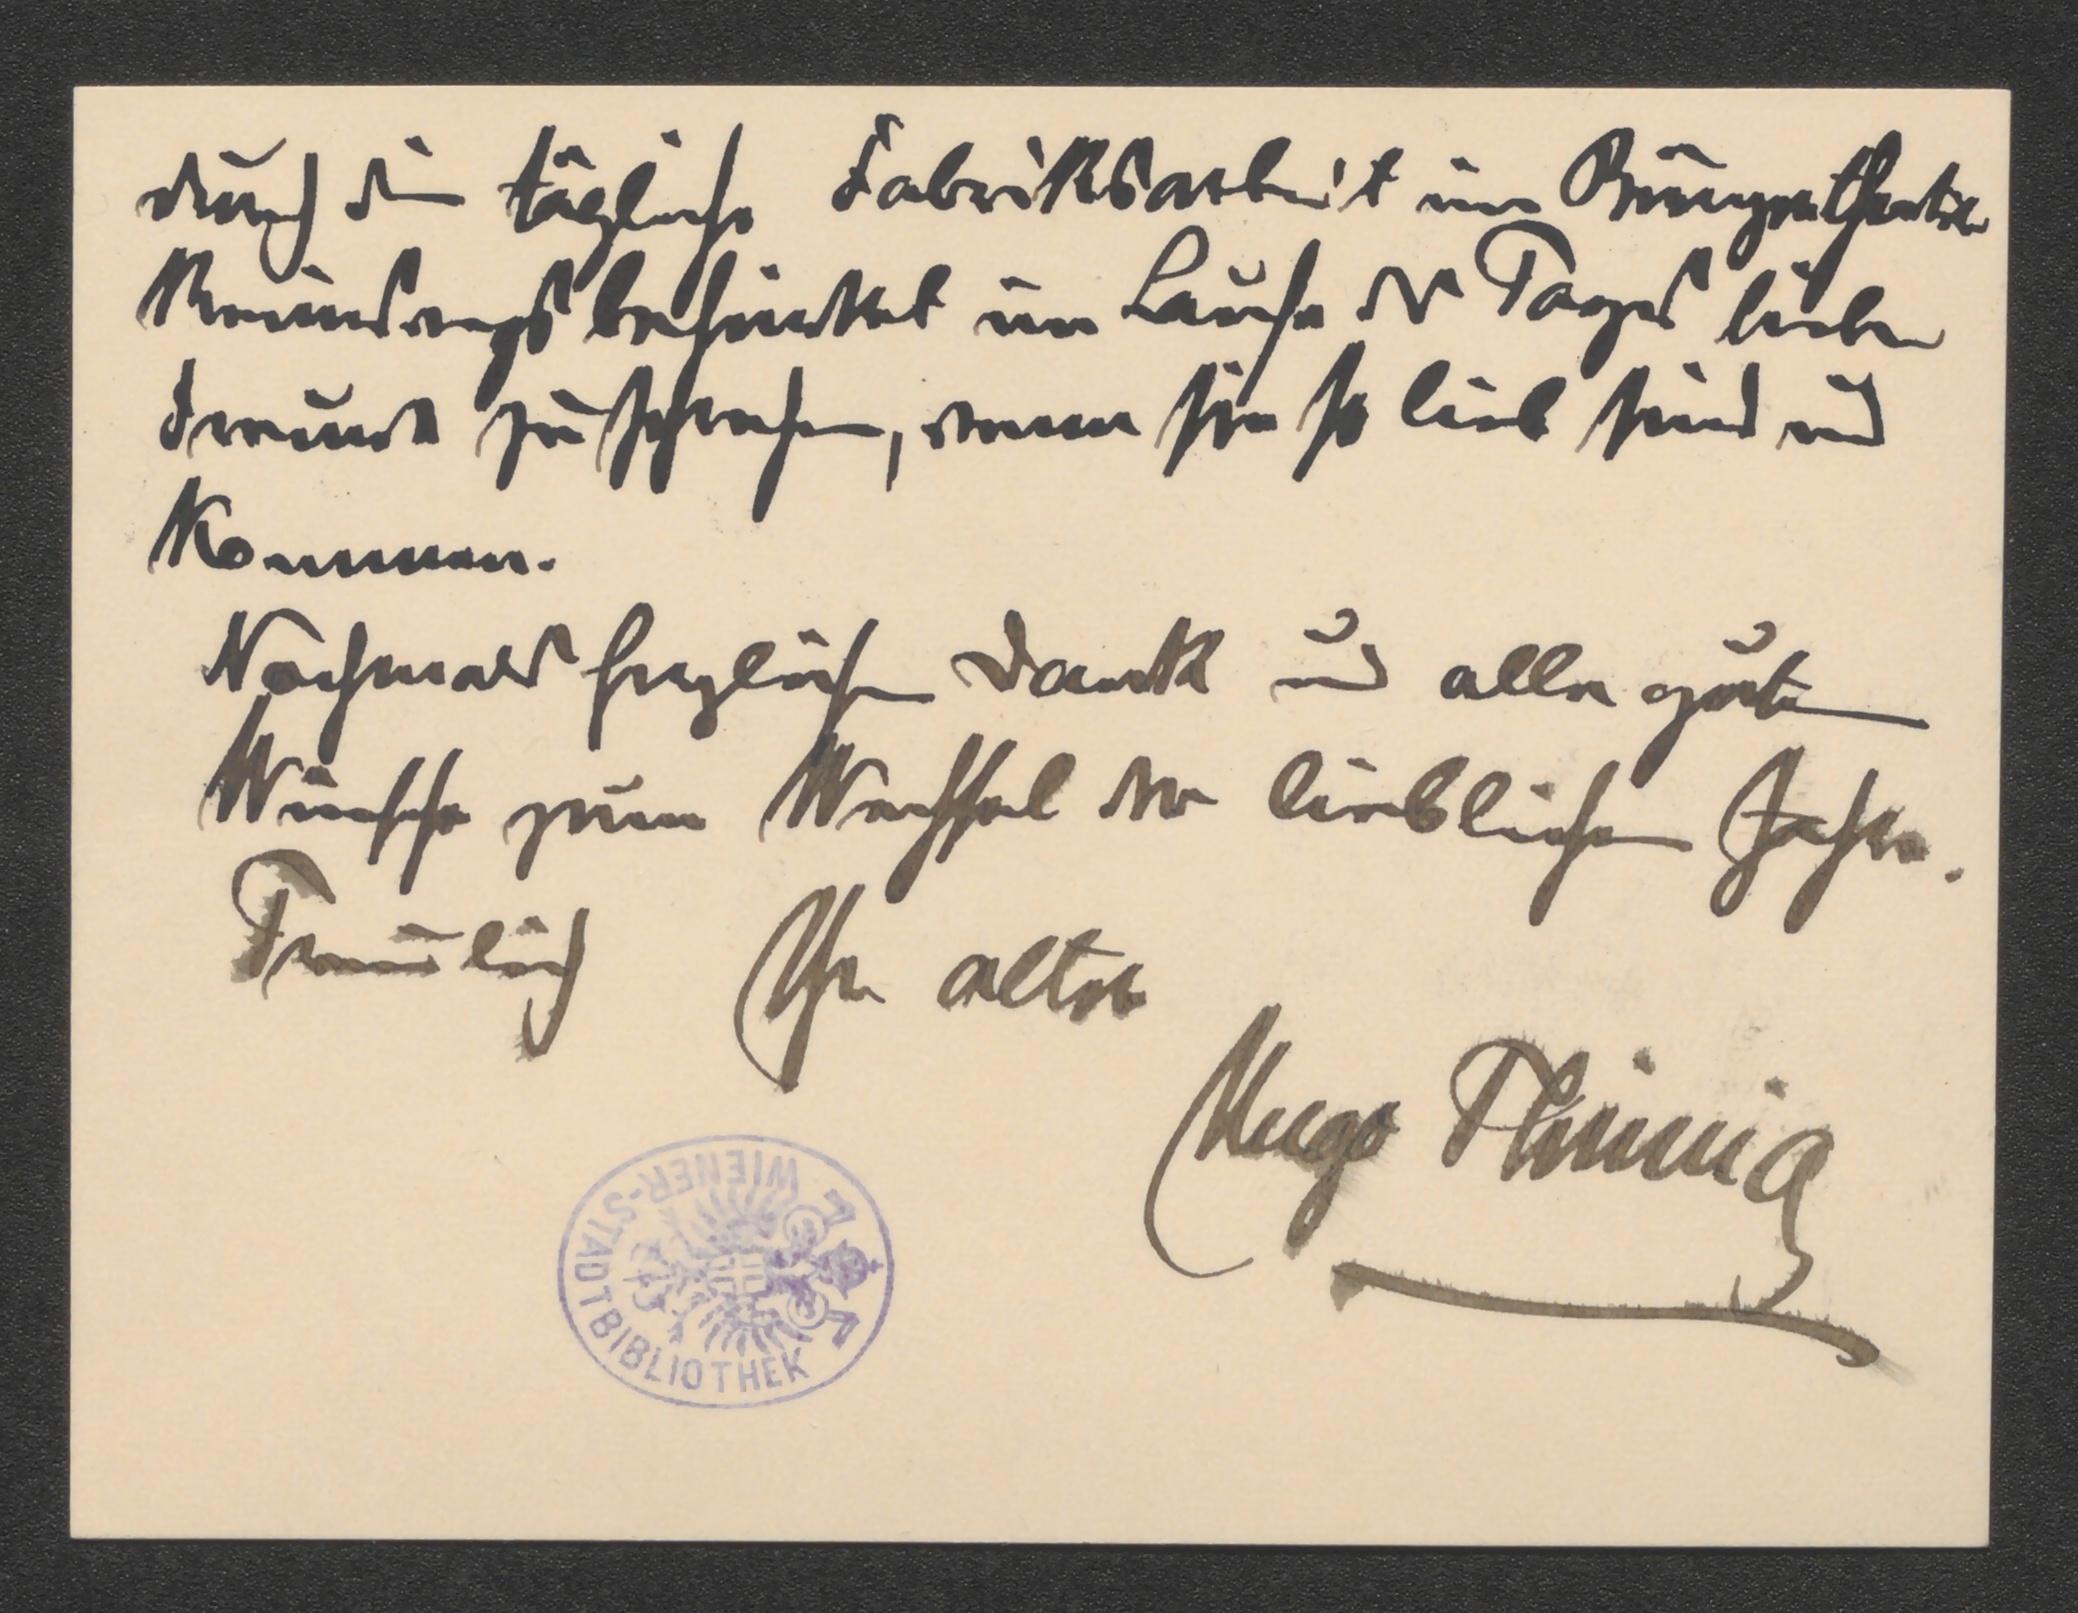 durch die tägliche Fabriksarbeit im Burgentheater
Keinswegs behindert im Laufe des Tages liebe
Freunde zu sprechen, wenn sie so lieb sind und
Kommen.
Nochmals herzlichen Dank und alle guten
Wünsche zum Wechsel der lieblichen Jahre.
Treulich Ihr alter
Hugo Thimig
WIENER-STADTBIBLIOTHEK